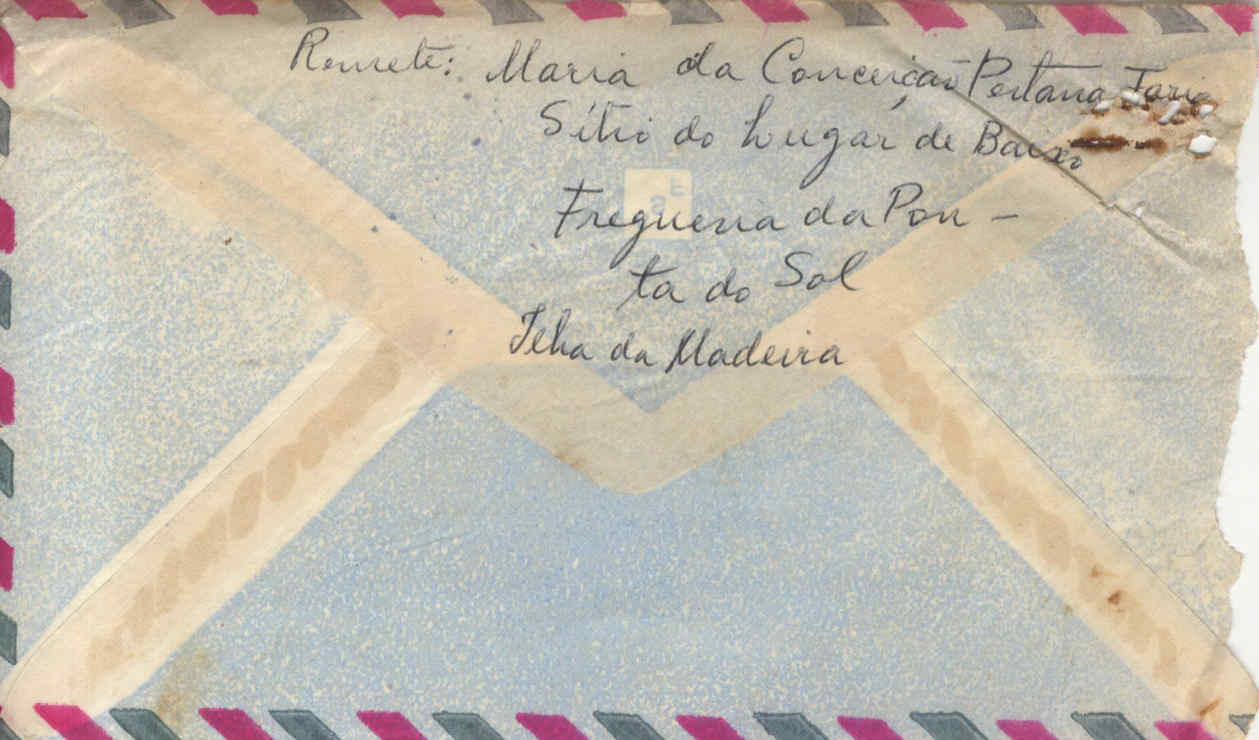 Remete: Maria da Conceição Pestana Faria
Sítio do Lugar de Baixo
Freguesia da Pon -
ta do Sol
Ilha da Madeira